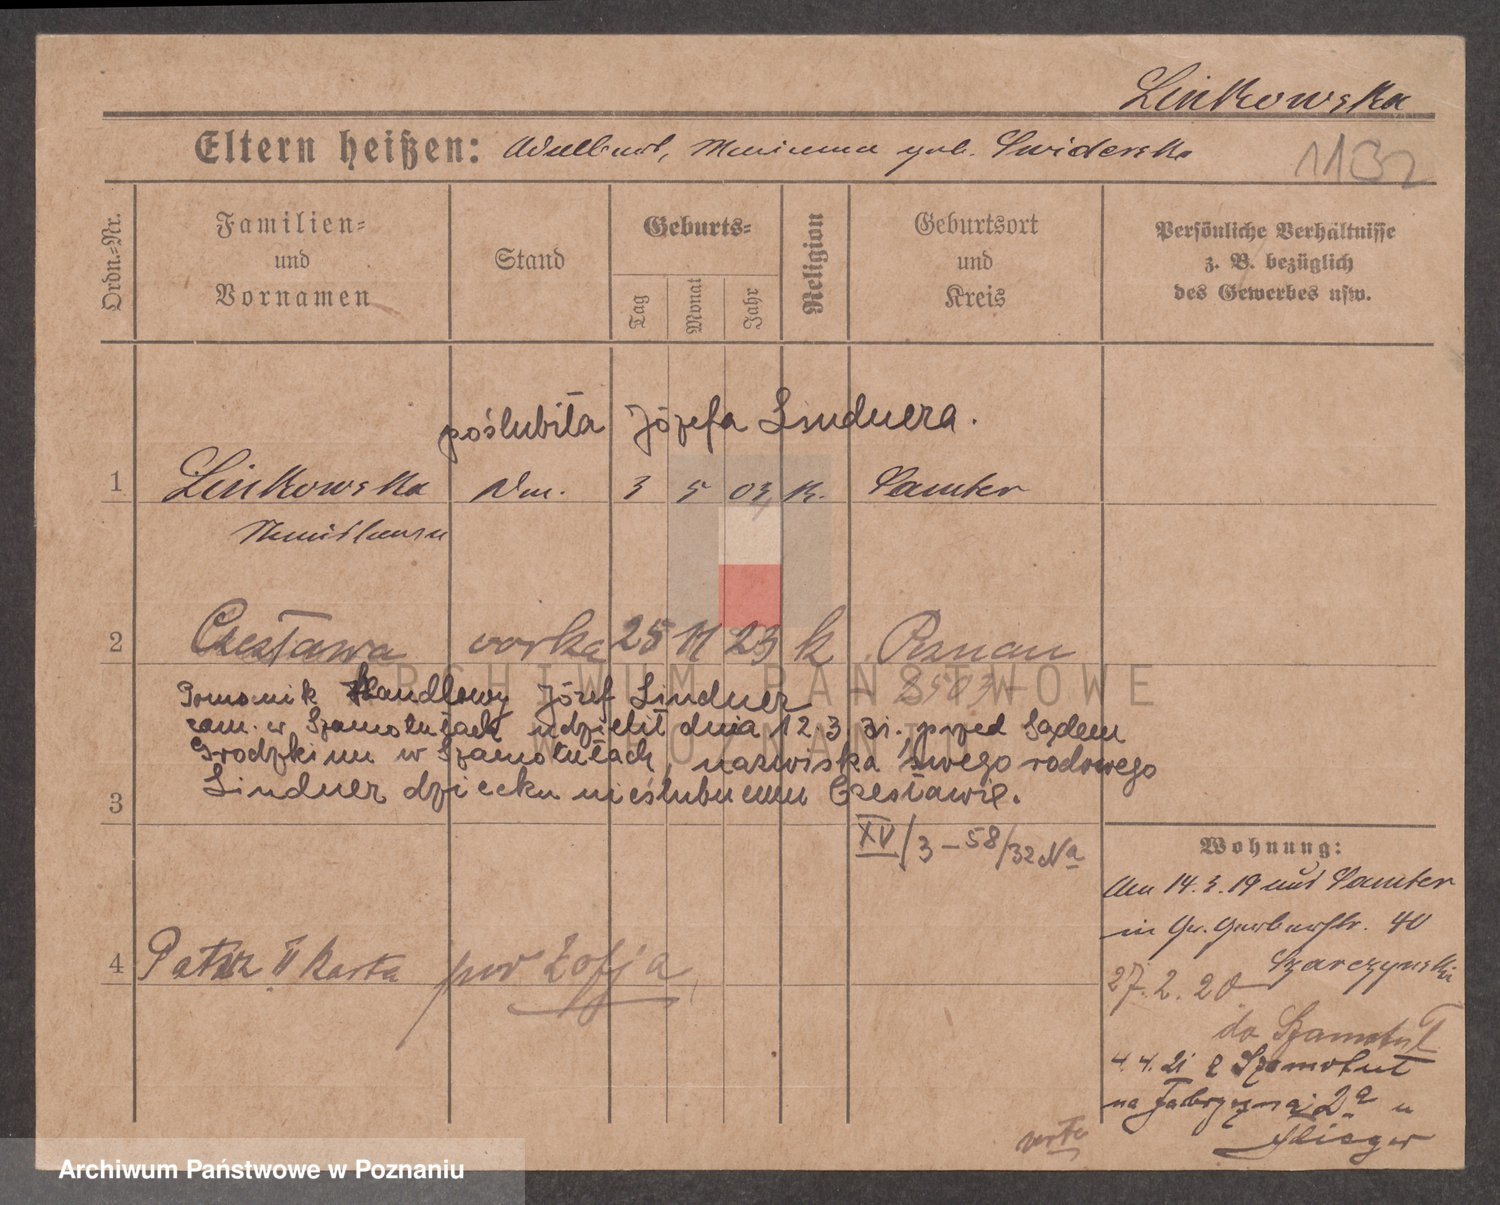 Linkowska
Eltern heißen: Adalbert, Marianna geb. Swiderska
1132
Ordn.-Nr.
Familien-
und
Vornamen
Stand
Geburts-
Tag
Monat
Jahr
Religion
Geburtsort
und
Kreis
Persönliche Verhältnisse
z. B. bezüglich
des Gewerbes usw.
poślubiła Józefa Lindnera.
1 Linkowska 3 5 03 k. Samter
2 Czesława corka 25 11 23 k Poznan
Pomocnik Handlowy Józef Lindner
zam. w Szamotułach udzielił dnia 12.3.31. przed Sądem
Grodzkim w Szamotułach, nazwiska swego rodowego
3 Lindner dziecku nieślubnemu Czesławie.
XV/3-58/32 Na
Wohnung:
Am 14.3.19 aus Samter
in Gr. Gerberstr. 40
Szarczynski
27.2.20
do Szamotuł
4.4.21 z Szamotuł
na Fabryczną 2a u
4 Patrz II karta pod Zofja
verte
ARCHIWUM PAŃSTWOWE
W POZNANIU
Archiwum Państwowe w Poznaniu